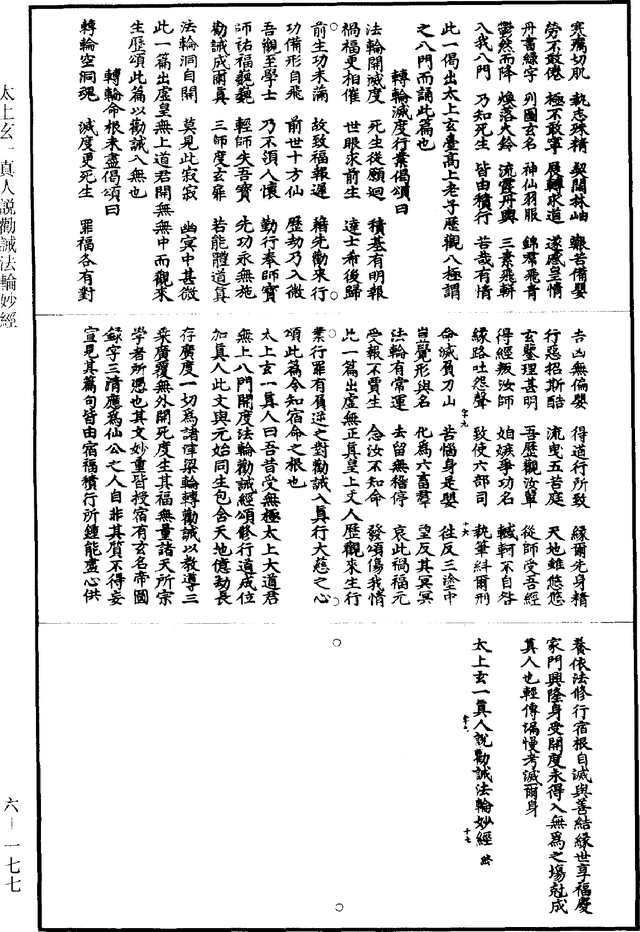 寒癘切肌　執志殊精　契闊林岫　艱苦備嬰
勞不敢倦　極不敢寧　展轉求道　遂感皇情
丹書綠字　列圖玄名　神仙羽服　錦羣飛青
鬱然而降　煥落火鈴　流霞丹輿　三素飛軿
入我八門　乃知死生　皆由積行　苦哉有情
此一偈出太上玄臺高上老子歷觀八極謂
之八門而誦此篇也
轉輪滅度行業偈頌曰
法輪開滅度　死生從願迴　積基有明報
禍福更相催　世眼求前生　達士希後歸
前生功未滿　故致福報遲　藉先勸來行
功備形自飛　前世十方仙　歷劫乃入微
吾觀至學士　乃不須人懷　勤行奉師寶
師祐福巍巍　輕師失吾寶　先功永無施
勸誡成爾真　三師度玄扉　若能體道真
法輪洞自開　莫見此寂寂　幽冥中甚微
此一篇出虛皇無上道君開無無中而觀來
生歷頌此篇以勸誡入無也
轉輪命根未盡偈頌曰
轉輪空洞魂　滅度更死生　罪福各有對
吉凶無偏嬰　得道行所致　緣爾先身精
行惡招斯酷　流曳五苦庭　天地雖悠悠
玄鑒理甚明　吾歷觀汝輩　從師受吾經
得經叛汝師　妬嫉爭功名　轗軻不自咎
緣路吐怨聲　致使六部司　執筆糾爾刑
命滅負刀山　苦惱身是嬰　往反三塗中
豈覺形與名　化為六畜羣　望反其冥冥
法輪有常運　去留無稽停　哀此禍福元
受報不賈生　念汝不知命　發頌傷我情
此一篇出虛無正真皇上丈人歷觀來生行
業行罪有負逆之對勸誡入真行大慈之心
頌此篇令知宿命之根也
太上玄一真人曰吾昔受無極太上大道君
無上八門開度法輪勸誡經頌修行道成位
加真人此文與元始同生包含天地億劫長
存廣度一切為諸津梁輪轉勸誡以教導三
乘廣覆無外開死度生其福無量諸天所宗
學者所憑也其文妙重皆授宿有玄名帝圖
錄字三清應為仙公之人自非其質不得妄
宣見其篇句皆由宿福積行所鍾能盡心供
養依法修行宿根自滅與善結緣世享福慶
家門興隆身受開度永得入無為之場尅成
真人也輕傳漏慢考滅爾身
太上玄一真人說勸誡法輪妙經
太上玄一真人說勸誡法輪妙經
六–一七七